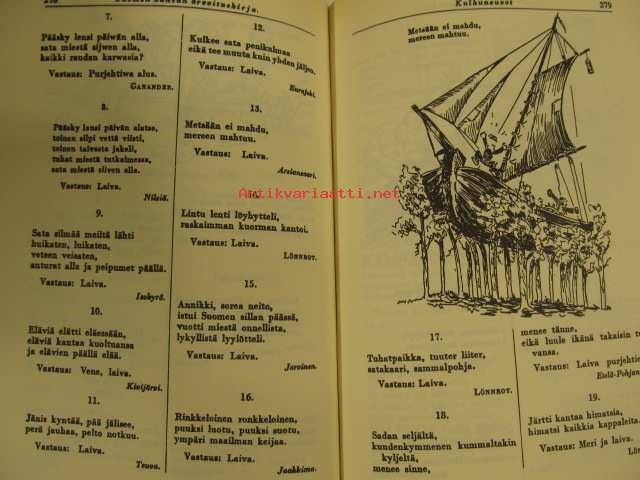 Suomen kansan arvoituskirja.
7.
Pääsky lensi päiwän alla,
sata miestä sijwen alla,
kaikki raudan karwasia?
Vastaus: Purjehtiwa alus.
GANANDER.
8.
Pääsky lensi päivän alatse,
toinen siipi vettä viisti,
toinen taivasta jakeli,
tuhat miestä tutkaimessa,
sata miestä siiven alla.
Vastaus: Laiva.
Nilsiä.
9.
Sata silmää meiltä lähti
huikaten, luikaten,
veteen veisaten,
anturat alla ja peipumet päällä.
Vastaus: Laiva.
Isokyrö.
10.
Eläviä elätti eläessään,
eläviä kantaa kuoltuansa
ja elävien päällä elää.
Vastaus: Vene, laiva.
Kivijärvi.
11.
Jänis kyntää, pää jälisee,
perä jauhaa, pelto notkuu.
Vastaus: Laiva.
Teuva.
12.
Kulkee sata penikulmaa
eikä tee muuta kuin yhden jäljen.
Vastaus: Laiva.
Eurajoki.
13.
Metsään ei mahdu,
mereen mahtuu.
Vastaus: Laiva.
Antikvariaatti.net
Lintu lenti löyhytteli,
raskaimman kuorman kantoi.
Vastaus: Laiva.
LÖNNROT.
15.
Annikki, sorea neito,
istui Suomen sillan päässä,
vuotti miestä onnellista,
lykyllistä lyylötteli.
Vastaus: Laiva.
Joroinen.
16.
Rinkkeloinen ronkkeloinen,
puuksi luotu, puuksi suotu,
ympäri maailman keijaa.
Vastaus: Laiva.
Jaakkima.
Kulkuneuvot
279
Metsään ei mahdu,
mereen mahtuu.
17.
Tuhatpaikka, tuuter liiter,
satakaari, sammalpohja.
Vastaus: Laiva.
LÖNNROT.
18.
Sadan seljältä,
kundenkymmenen kummaltakin
kyljeltä,
menee sinne,
menee tänne,
eikä luule ikänä takaisin
vansa.
Vastaus: Laiva
Etelä-Pohjan
19.
Järtti kantaa himatsia,
himatsi kaikkia kappaleita.
Vastaus: Meri ja laiva.